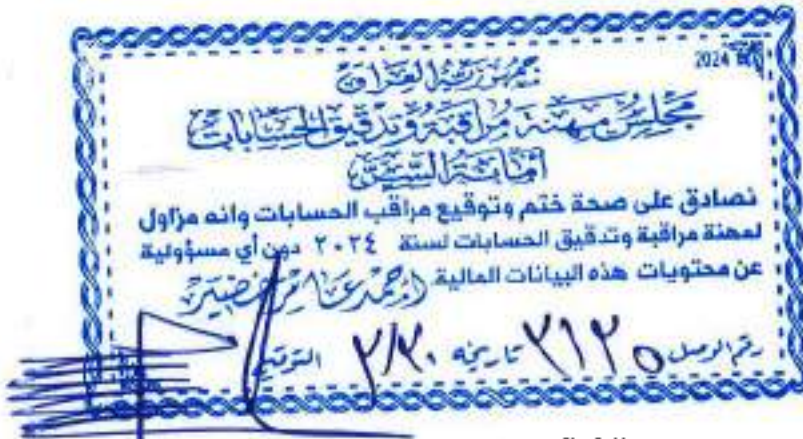 2024
جمهورية العراق
مجلس مهنة مراقبة وتدقيق الحسابات
أمانة السر
نصادق على صحة ختم وتوقيع مراقب الحسابات وانه مزاول
لمهنة مراقبة وتدقيق الحسابات لسنة ٢٠٢٤ دون أي مسؤولية
عن محتويات هذه البيانات المالية (احمد عامر خضير
رقم الوصل ٣١٢٥ تاريخه ٣/٣٠ التوقيع